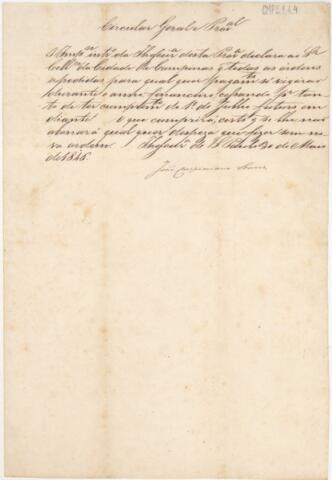 Circular Geral e Pro.al
O Insp.or int.o da Thesour.a desta Pro.a declara ao Sr.
Coll.or da Cidade de Campinas q todas as ordens
expedidas para qual quer pagam.to só vigorão
durante o anno financeiro, espirando p.r tan-
to de ter cumprim.to do 1.o de Julho futuro em
diante o que cumprirá, certo q se lhe não
abonará qual quer despeza que fizer sem no-
va ordem. Thesour.a de S. Paulo 30 de Maio
de 1848.
João